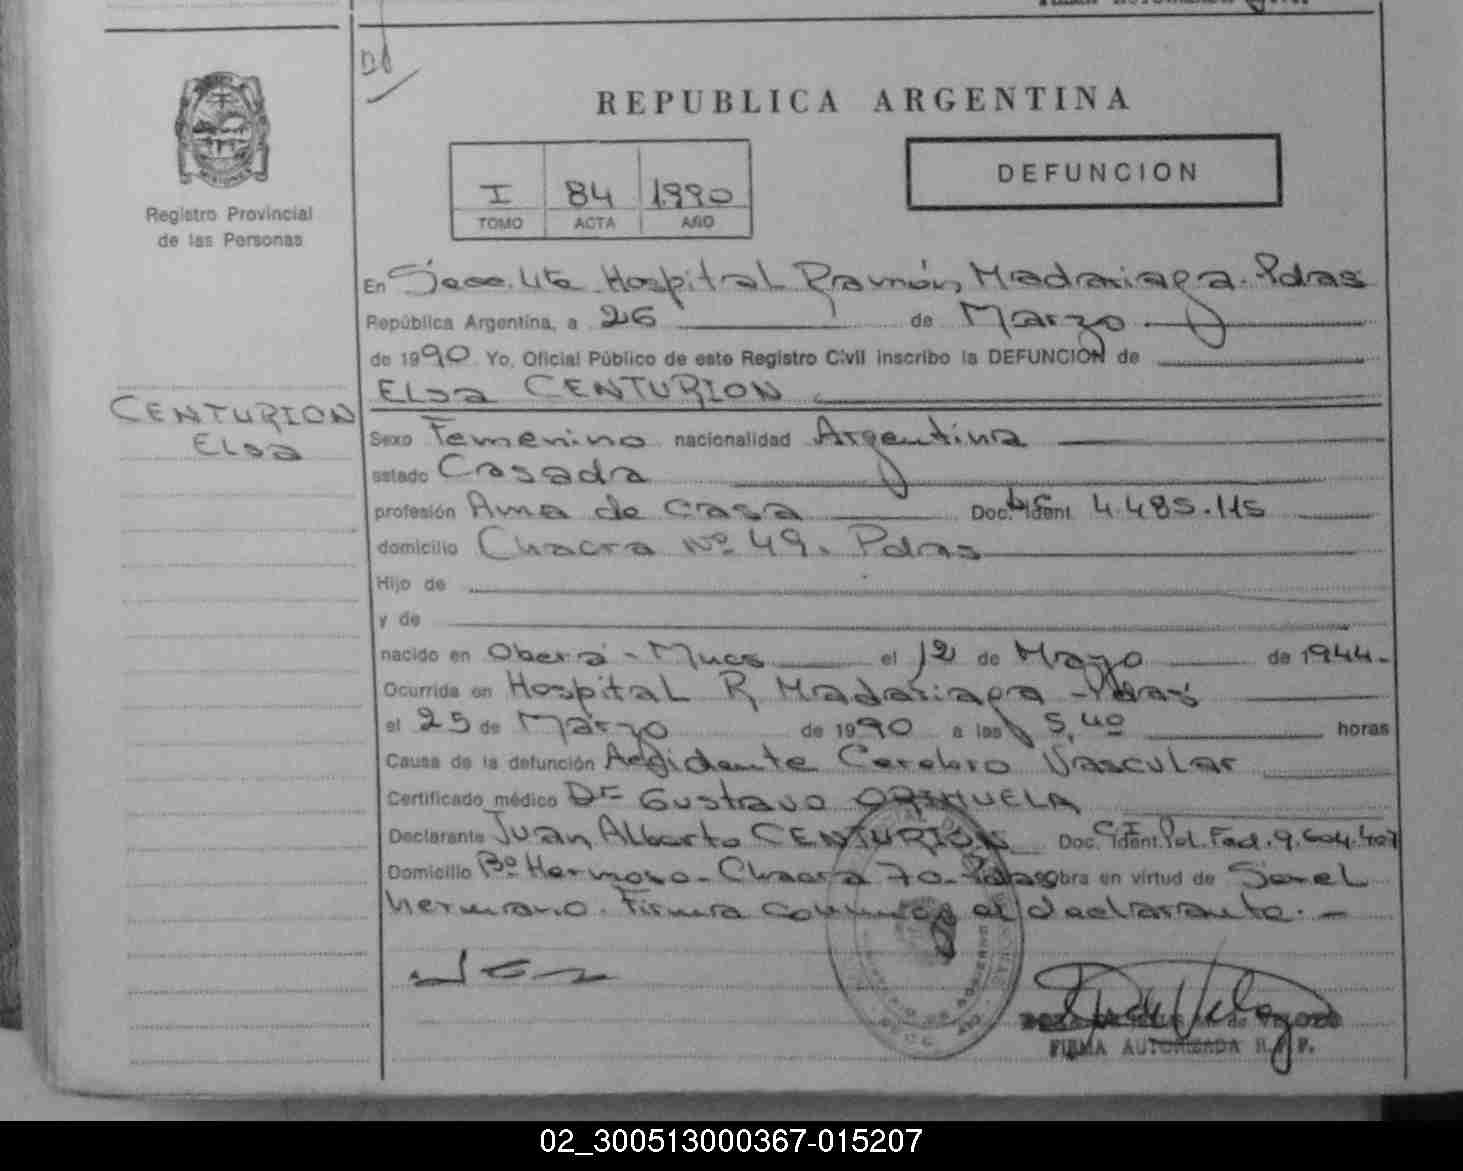 D1
REPUBLICA ARGENTINA
DEFUNCION
I 84 1.990
TOMO ACTA AÑO
Registro Provincial
de las Personas
En Secc. 4ta Hospital Ramón Madariaga. Pdas
República Argentina, a 26 de Marzo
de 1990. Yo, Oficial Público de este Registro Civil inscribo la DEFUNCION de
Elsa CENTURION
CENTURION
Elsa
Sexo Femenino nacionalidad Argentina
estado Casada
profesión Ama de casa Doc. Ident. L.C. 4.485.115
domicilio Chacra Nº 49. Pdas
Hijo de
y de
nacido en Oberá - Mnes el 12 de Mayo de 1944-
Ocurrida en Hospital R. Madariaga - Pdas
el 25 de Marzo de 1990 a las 5,40 horas
Causa de la defunción Accidente Cerebro Vascular
Certificado médico Dr Gustavo ORIHUELA
Declarante Juan Alberto CENTURION Doc. Ident. C.I. Pol. Fed. 9.604.407
Domicilio Bº Hermoso - Chacra 70 - Pdas obra en virtud de Ser el
hermano. Firma conmigo el declarante. -
FIRMA AUTORIZADA R. P. P.
02_300513000367-015207